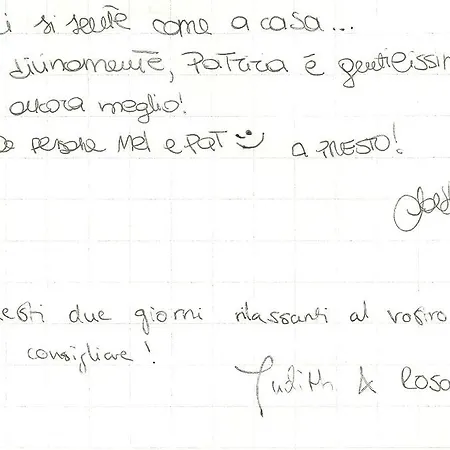 i si sente come a casa...
divinamente, Patrizia è gentilissim
ancora meglio!
e persone Mel e Pat a PRESTO!
esti due giorni rilassanti al vostro
consigliare!
Judith & Rosa